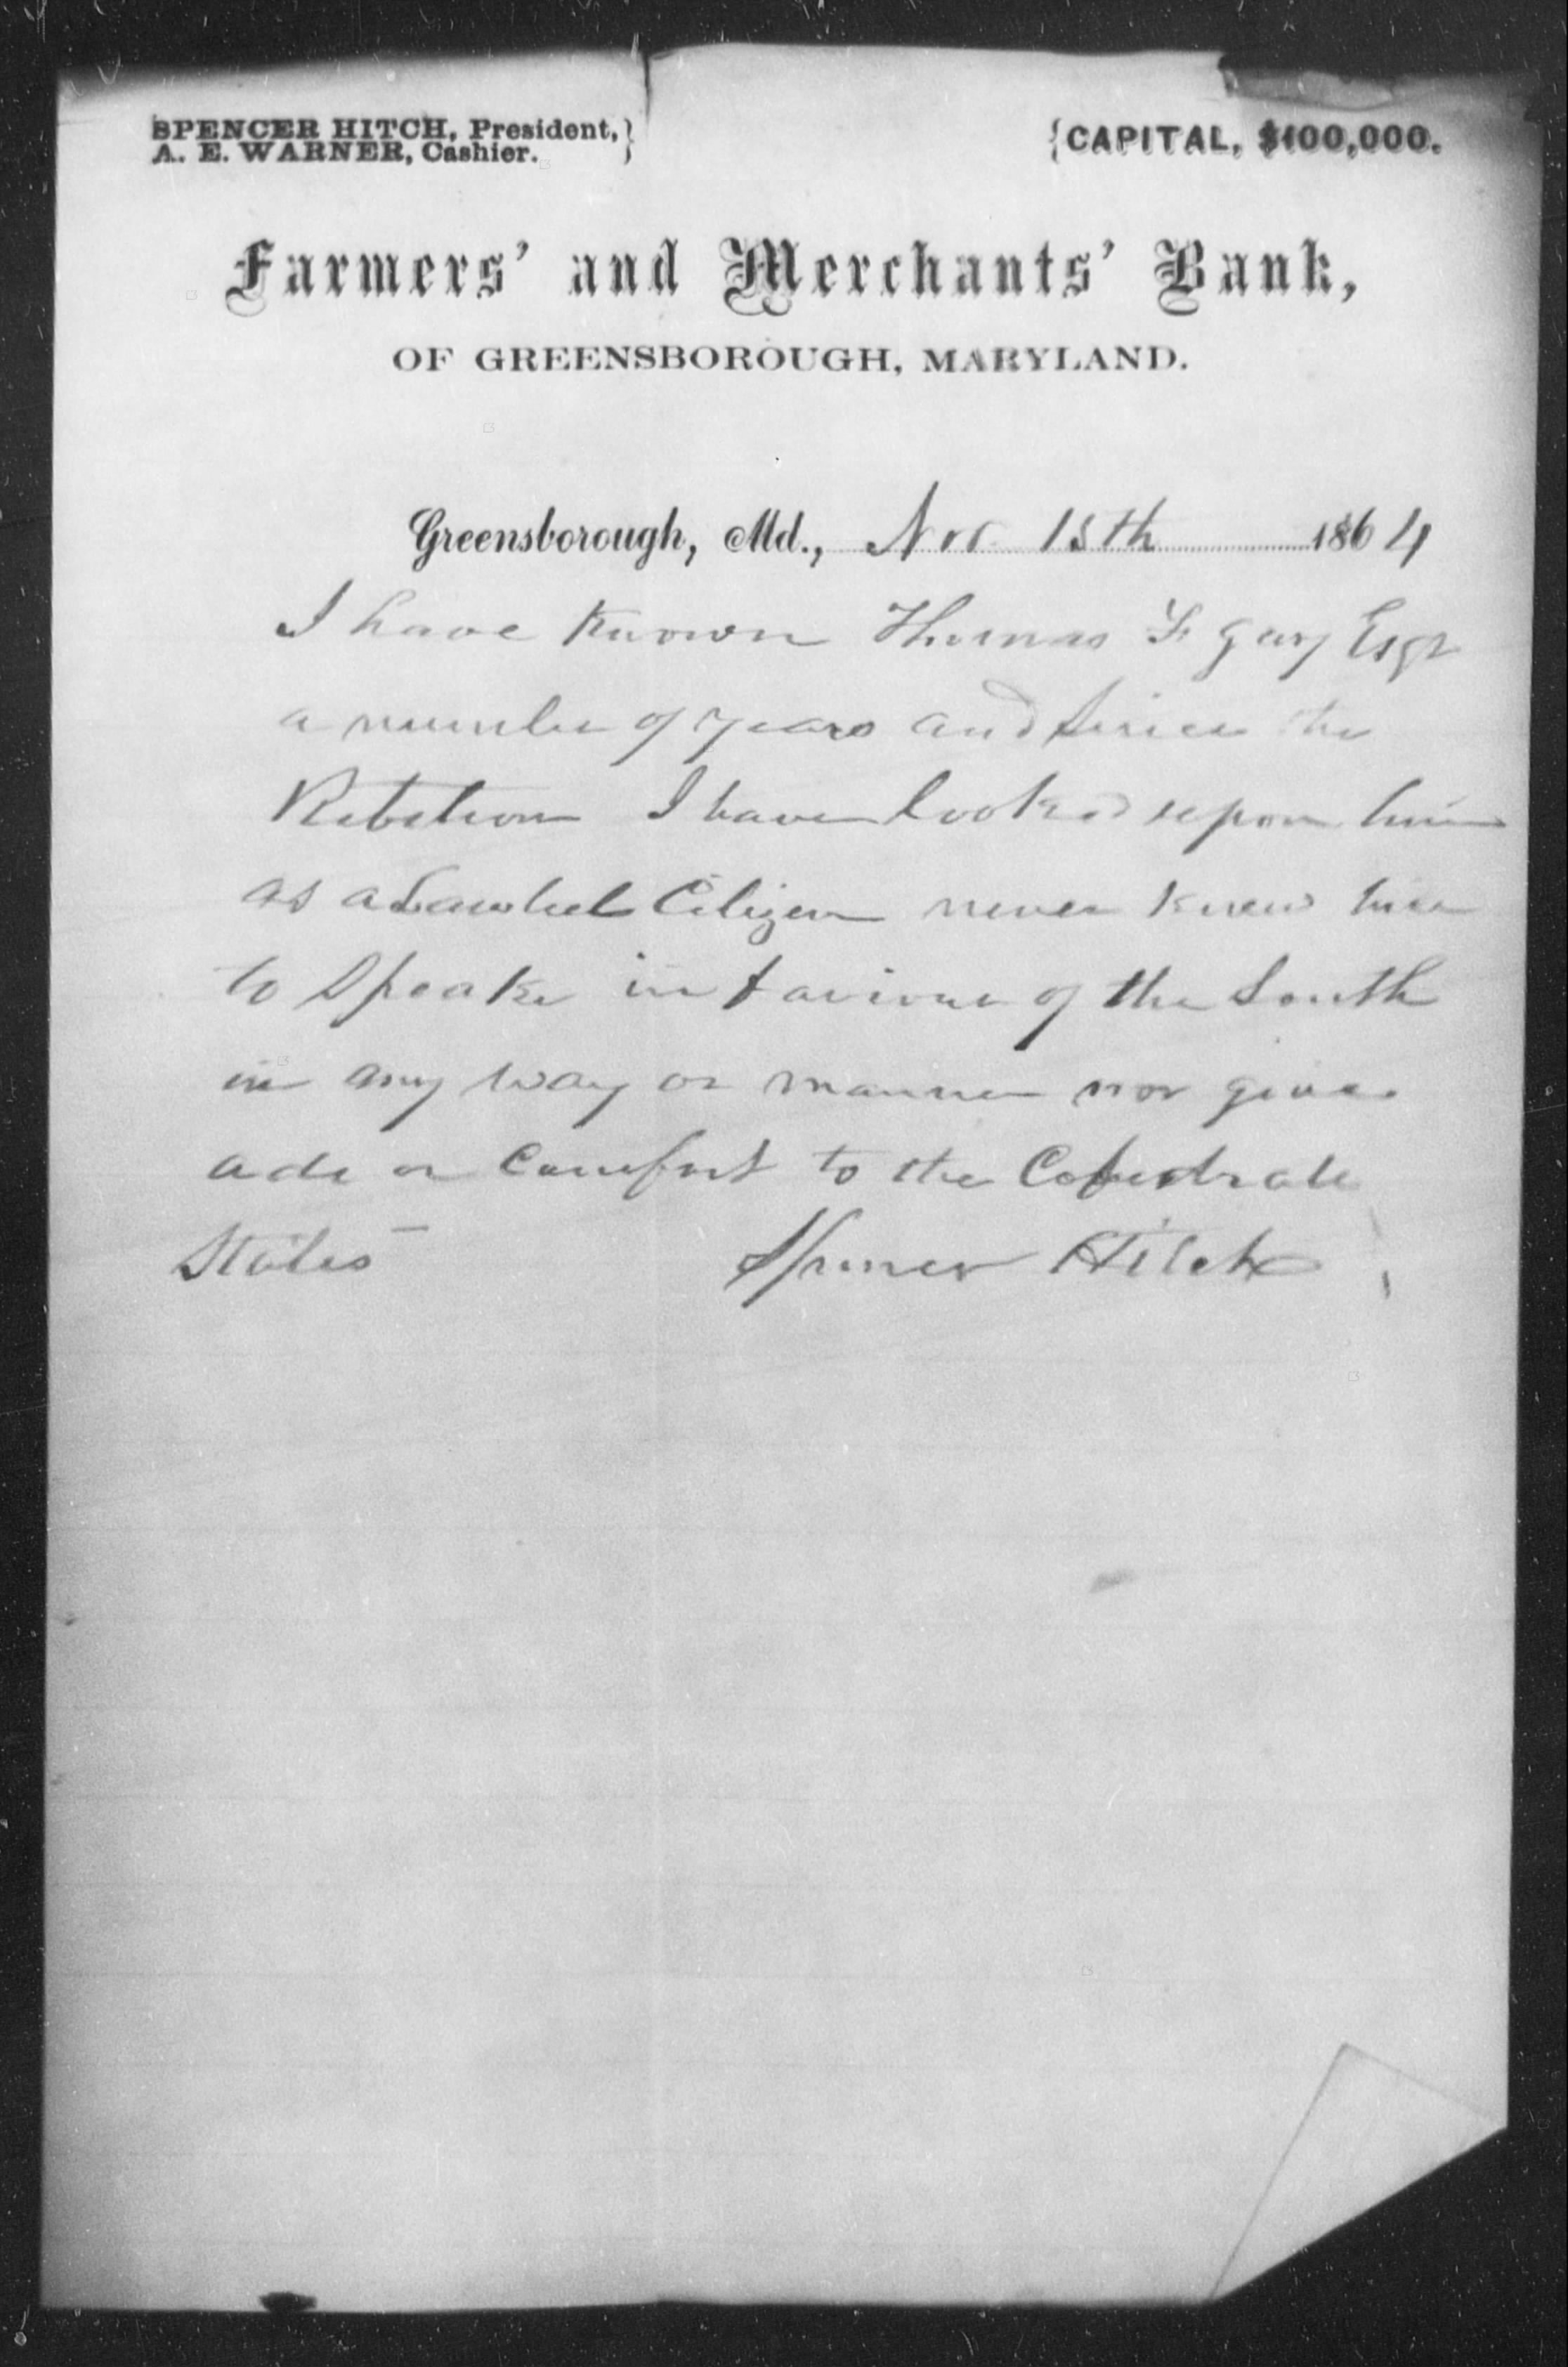 SPENCER HITCH, President,
A. E. WARNER, Cashier.
CAPITAL, $100,000.
Farmers' and Merchants' Bank,
OF GREENSBOROUGH, MARYLAND.
Greensborough, Md., Nov 15th 1864
I have known Thomas F Gary Esqr
a number of years and since the
Rebelion I have looked upon him
as a Lawful Citizen never knew him
to Speake in faviour of the South
in any way or manner nor give
ade or Comfort to the Cofedrate
States
Spencer Hitch